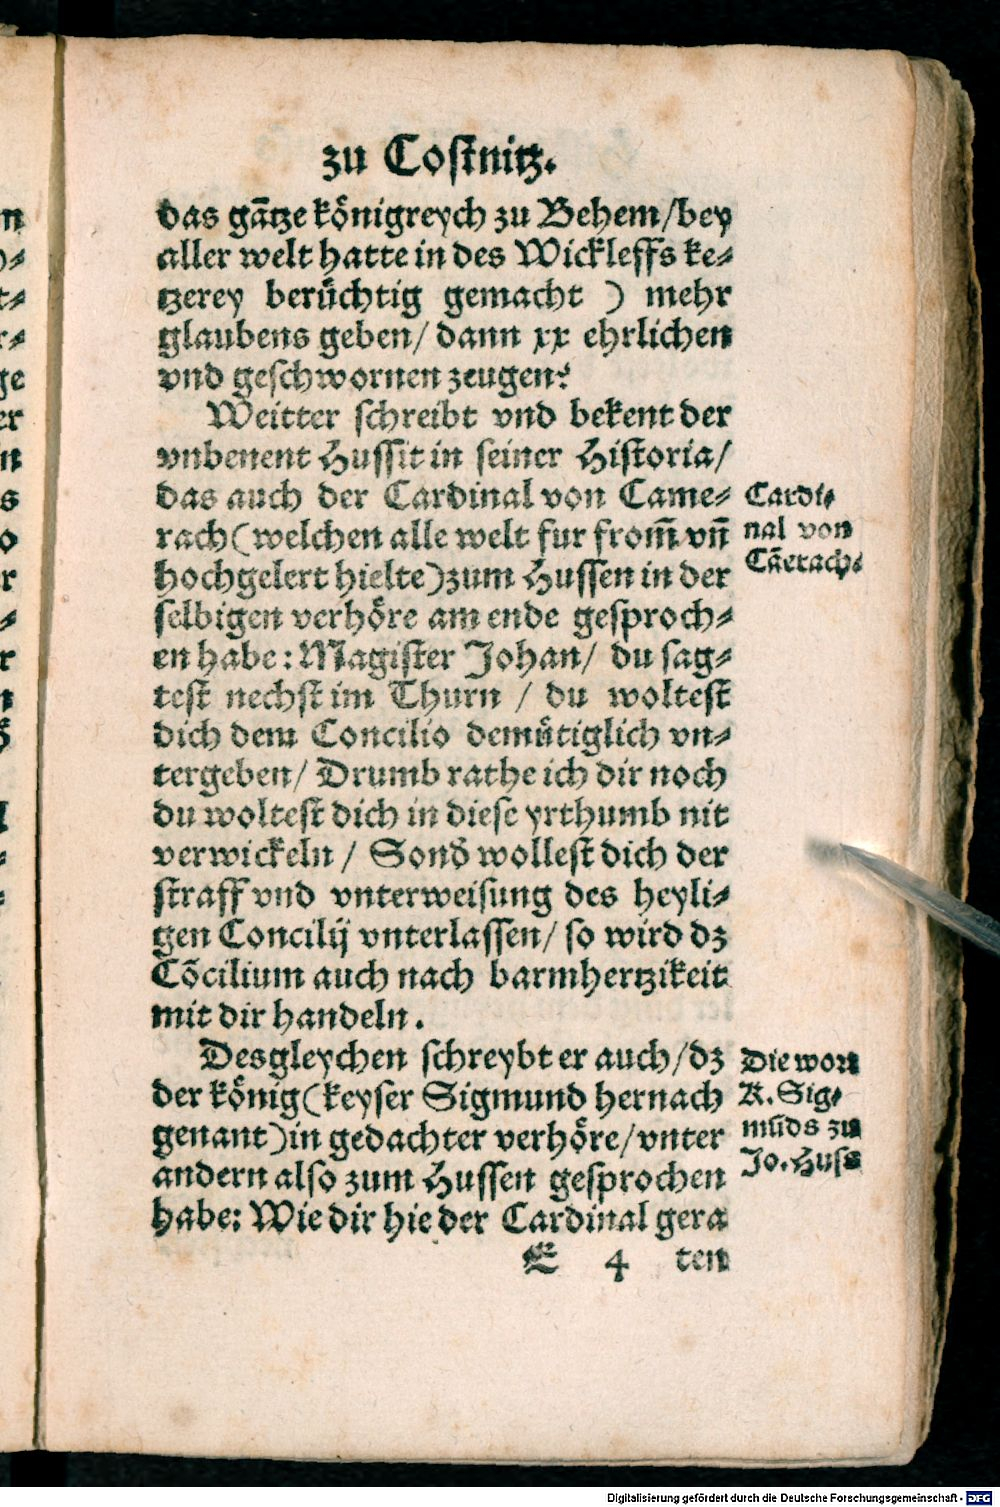 zu Costnitz.
das gātze königreych zu Behem/bey
aller welt hatte in des Wickleffs ke⸗
tzerey berüchtig gemacht ) mehr
glaubens geben/ dann xx ehrlichen
vnd geschwornen zeugen?
Weitter schreibt vnd bekent der
vnbenent Hussit in seiner Historia/
das auch der Cardinal von Came⸗
rach(welchen alle welt fur from̄ vn̄
hochgelert hielte)zum Hussen in der
selbigen verhöre am ende gesproch⸗
en habe: Magister Johan/ du sag⸗
test nechst im Thurn / du woltest
dich dem Concilio demütiglich vn⸗
tergeben/ Drumb rathe ich dir noch
du woltest dich in diese yrthumb nit
verwickeln / Sond̄ wollest dich der
straff vnd vnterweisung des heyli⸗
gen Concilij vnterlassen/ so wird dz
Cōcilium auch nach barmhertzikeit
mit dir handeln.
Desgleychen schreybt er auch/dz
der könig(keyser Sigmund hernach
genant)in gedachter verhöre/vnter
andern also zum Hussen gesprochen
habe: Wie dir hie der Cardinal gera
E 4 ten
Cardi⸗
nal von
Cāerach.
Die wort
K. Sig⸗
mūds zu
Jo. Huss
n
⸗
t⸗
r⸗
ge
er
n
s
o
r
⸗
r
Digitalisierung gefördert durch die Deutsche Forschungsgemeinschaft - DFG